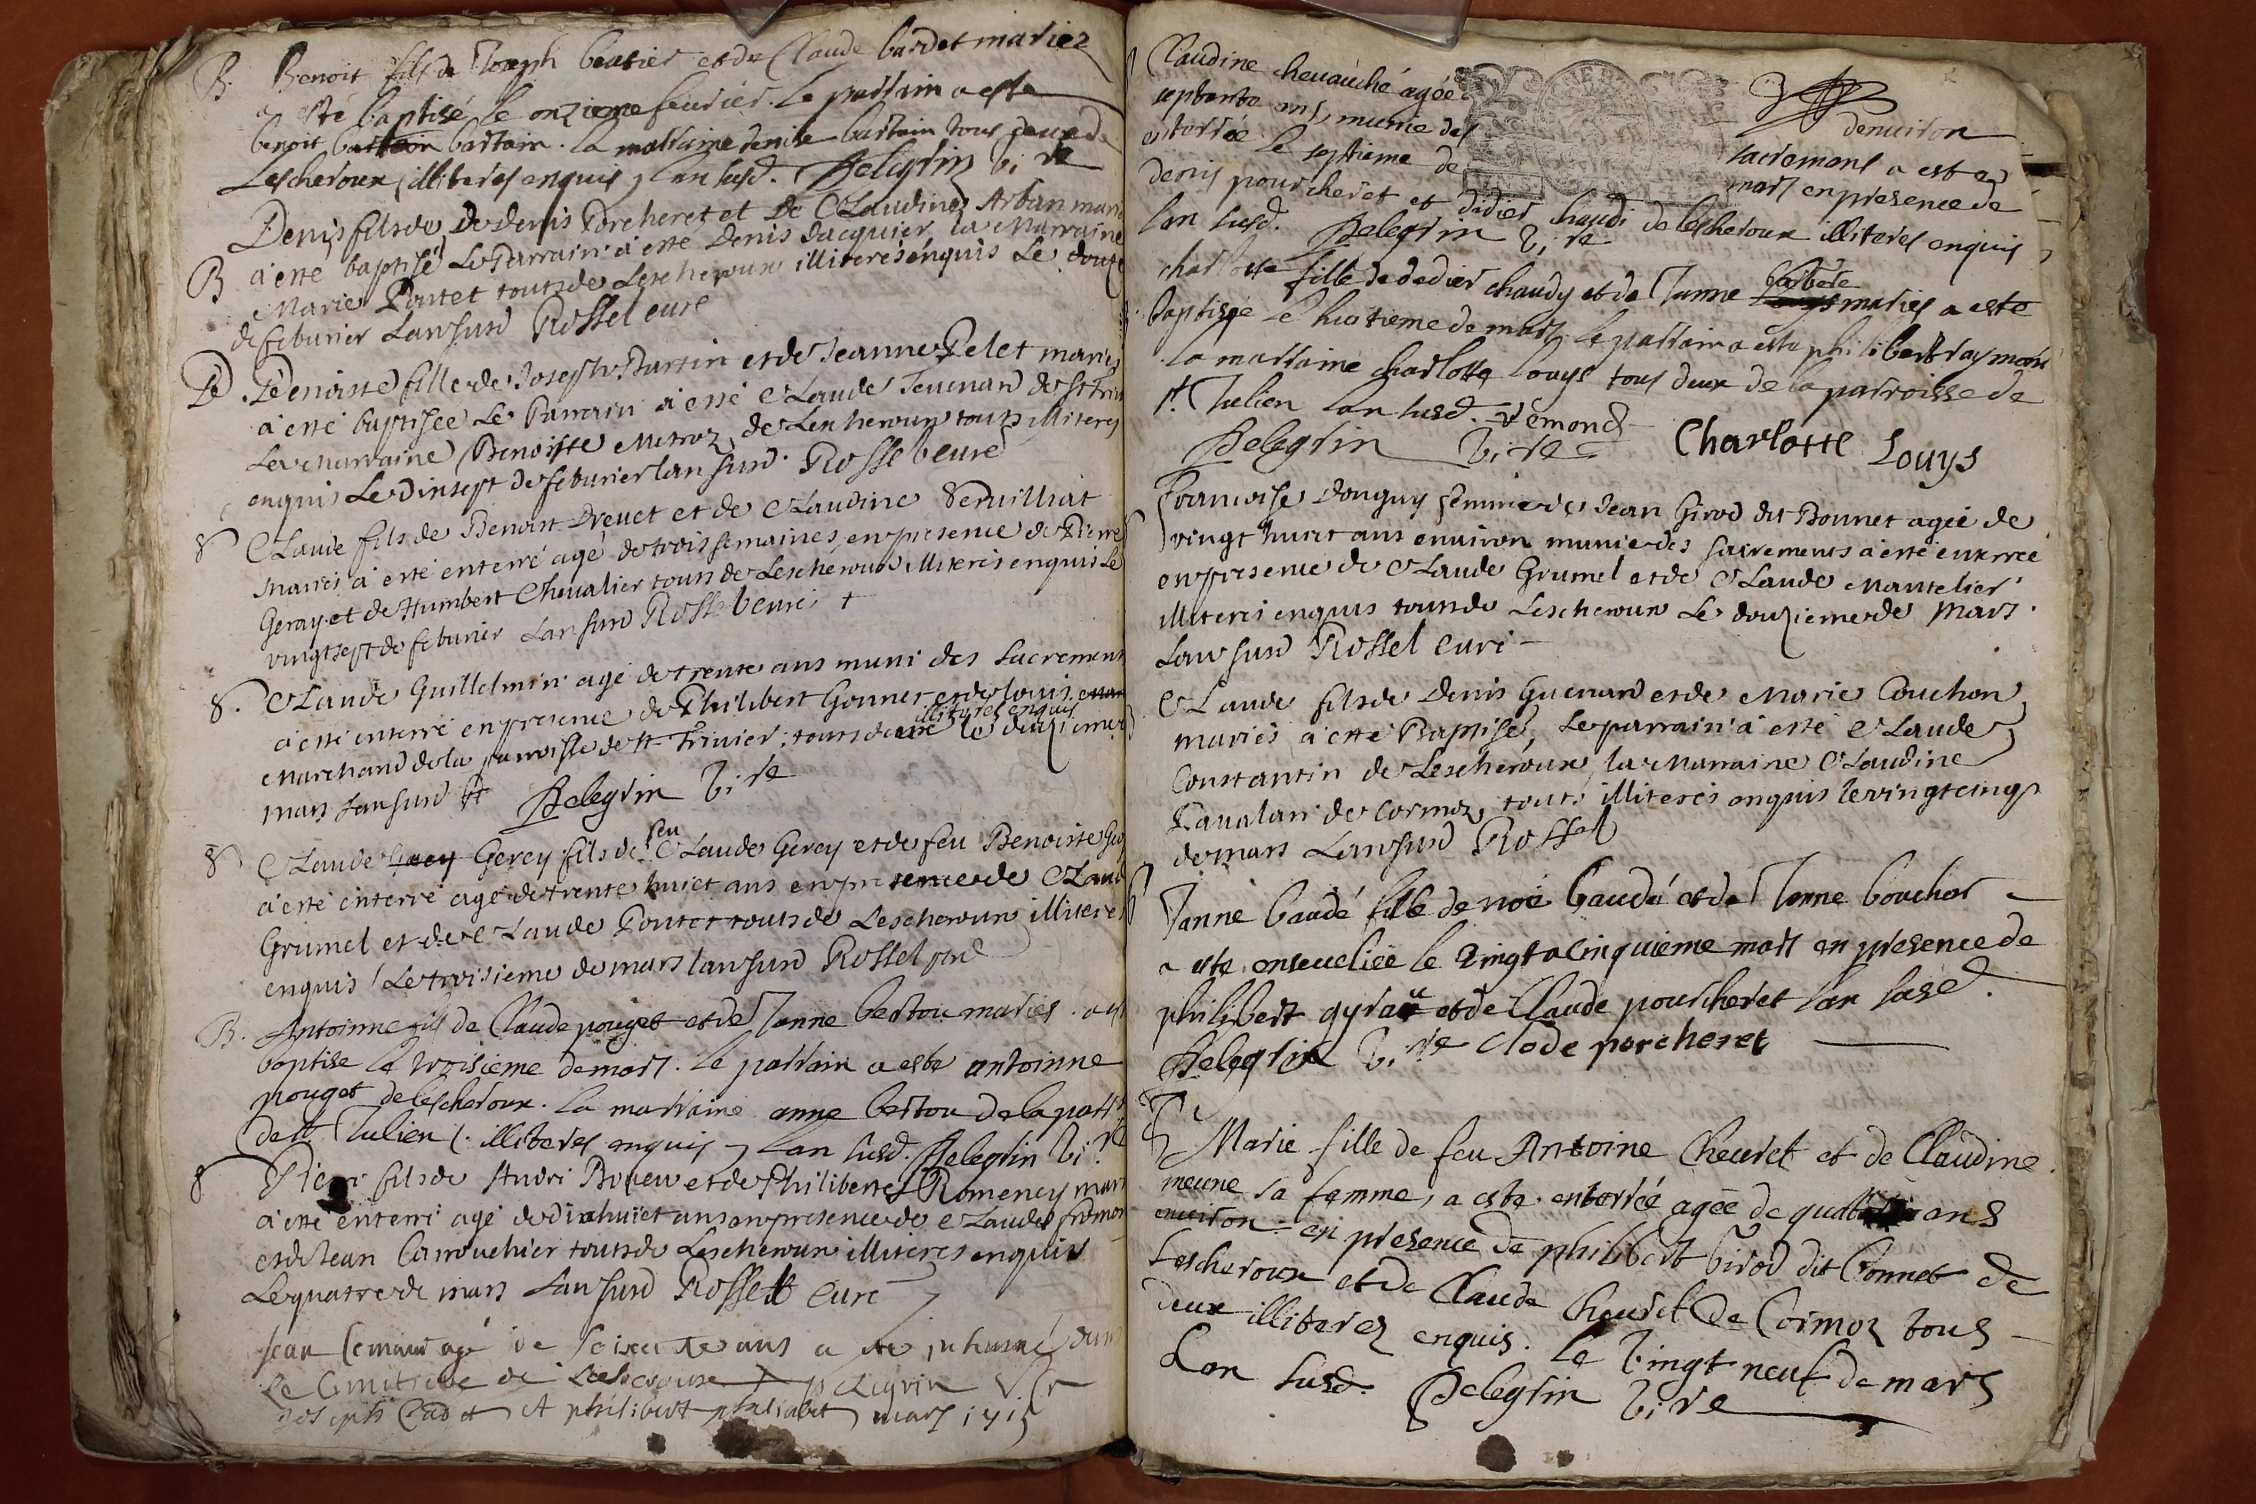 B. Benoit fils de Joseph beatier et de Claude bardet mariez
a esté baptisé le onzieme feurier. le parrain a este
benoit bartain. la marraine denise bartain tous deux de
Lescheroux illiterés enquis lan susd. Pelegrin vi re
Denis fils de de denis Porcheret et De Claudine Arban mariés
B a'esté baptisé Le Parrain a'esté Denis Jacquier la Marraine
Marie Pontet touts de Lescheroux illiterés enquis Le douze
de feburier Lan susd Rossel curé
B. Benoiste fille de Joseph Burtin et de Jeanne Pelet mariés
a'esté baptisée Le Parrain a'esté Claude Teuenard de St Triuier
La Marraine Benoiste Metroz de Lescheroux touts illiterés
enquis Le dixsept de feburier lan susd. Rossel curé
8 Claude fils de Benoist Dreuet et de Claudine Seruilliat
mariés a'esté enterré agé de trois semaines, en presence de Pierre
Geray et de Humbert Cheualier touts de Lescheroux illiterés enquis Le
vingtsept de feburier Lan susd Rossel curé +
8. Claude Guillelmin agé de trente ans muni des sacrements
a'esté enterré en presence de Philibert Gonner et de louis
illiterés enquis
Marchand de la parroisse de St Triuier, touts deux le deuxieme
mars Lan susd Pelegrin vi re
8 Claude Gerey fils de feu Claude Gerey et de feu Benoiste
a'esté enterré agé de trente huict ans en presence de Claude
Grumel et de Claude Pontet touts de Lescheroux illiterés
enquis Le troisieme de mars lan susd Rossel
B. Antoinne fils de Claude pouget et de Janne bertou mariés a esté
baptise le troisieme de mars. le parrain a este antoinne
pouget de lescheroux. la marraine anne bertou de la parr
de st Julien illiterés enquis lan susd. Pelegrin vi re
8 Pierre fils de Andri Broyeu et de Philiberte Romeney mariés
a'esté enterré agé de dixhuict ans en presence de Claude
et de Jean Carrouchier touts de Lescheroux illiterés enquis
Le quatre de mars Lan susd Rossel Curé
Jean agé de soixante ans a été inhumé dans
le Cimetiere de Lescheroux pelegrin v. re
Joseph Cadet et philibert mars 1715
Claudine cheuauché agée denuiron
septante ans, munie des sacremens a esté
enterrée le septieme de mars en presence de
denis pourcheret et didier chaudi de lescheroux illiterés enquis
lan susd. Pelegrin vi re
charlotte fille de dedier chaudy et de Janne barbere mariés a esté
baptisée le huitieme de mars. le parrain a esté philibert raymond
la marraine charlotte Louys tous deux de la parroisse de
st. Julien lan susd. Remond
Pelegrin vi re Charlotte Louys
Francoise donguy femme de Jean Girod dit Bonnet agée de
vingt huict ans environ munie des sacrements a'esté enterrée
en presence de Claude Grumel et de Claude Mantelier
illiterés enquis touts de Lescheroux Le douzieme de Mars.
Lan susd Rossel curé
Claude fils de Denis Guenard et de Marie Couchon
mariés a'esté Baptisé, Le parrain a'esté Claude
Constantin de Lescheroux, la Marraine Claudine
Raualan de Cormoz touts illiterés enquis le vingtcinq
de mars Lan susd Rossel
Janne baudé fille de noé baudé et de Janne boucher
a esté enseuelie le vingtacinquieme mars en presence de
philibert gyraux et de Claude pourcheret lan susd.
Pelegrin vi re Clode porcheret
Marie fille de feu Antoine Cheuret et de Claudine
meune sa femme, a esté enterrée agée de ans
enuiron en presence de philibert Girod dit bonnet de
Lescheroux et de Claude Cheuret de Cormoz tous
deux illiterez enquis. le vingt neuf de mars
Lan susd. Pelegrin vi re